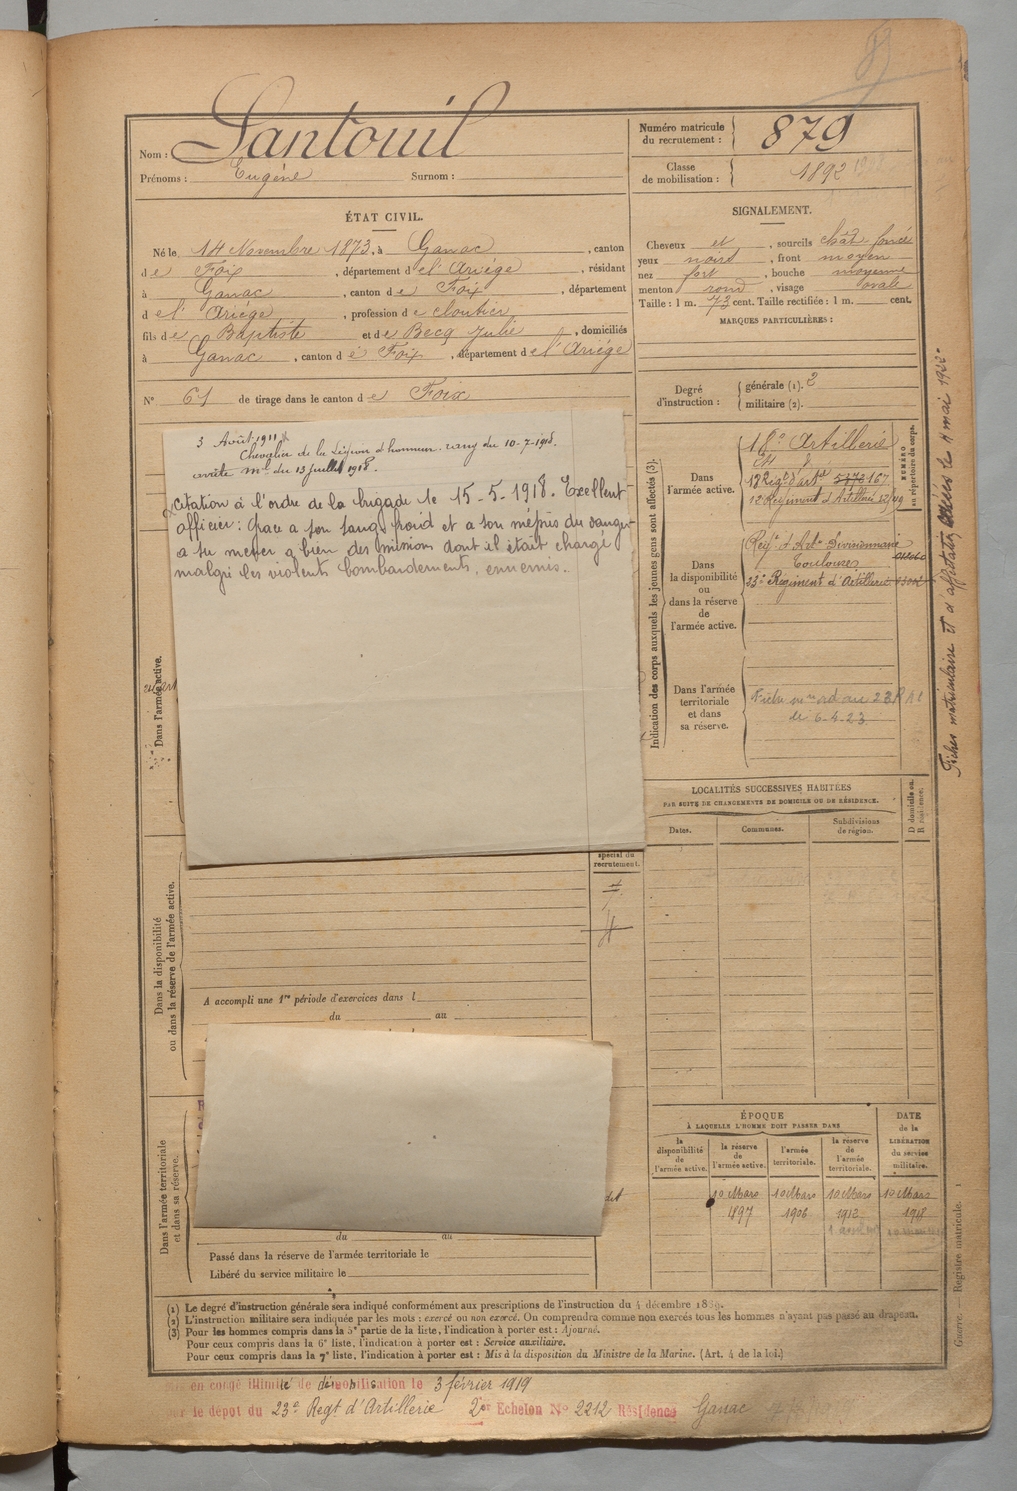 83
Nom : Lantouil
Prénoms : Eugène Surnom :
Numéro matricule du recrutement : 879
Classe de mobilisation : 1892
ÉTAT CIVIL.
Né le 14 Novembre 1873, à Ganac, canton
de Foix, département de l'Ariége, résidant
à Ganac, canton de Foix, département
de l'Ariége, profession de cloutier
fils de Baptiste et de Becq Julie, domiciliés
à Ganac, canton de Foix, département de l'Ariége
N° 61 de tirage dans le canton de Foix
SIGNALEMENT.
Cheveux et, sourcils chât. foncé
yeux noirs, front moyen
nez fort, bouche moyenne
menton rond, visage ovale
Taille : 1 m. 73 cent. Taille rectifiée : 1 m. cent.
MARQUES PARTICULIÈRES :
Degré d'instruction : générale (1). 2
militaire (2).
3 Août 1911
Chevalier de la Légion d'honneur. rang du 10-7-1918.
arrêté mel du 13 juillet 1918.
Citation à l'ordre de la brigade le 15-5-1918. Exellent
officier : Grace a son sang froid et a son mépris du danger
a su mener a bien des missions dont il était chargé
malgré les violents bombardements ennemis.
Indication des corps auxquels les jeunes gens sont affectés (3).
NUMÉRO au répertoire du corps.
Dans l'armée active.
18e Artillerie
18 Régt d'art 167
12 Régiment d'Artillerie
Dans la disponibilité ou dans la réserve de l'armée active.
Régt d'Artie Divisionnaire
Toulouse
23e Régiment d'Artillerie
Dans l'armée territoriale et dans sa réserve.
le 6-4-23
Fiches matriculaire et d'affectation créées le 11 mai 1922.
LOCALITÉS SUCCESSIVES HABITÉES
PAR SUITE DE CHANGEMENTS DE DOMICILE OU DE RÉSIDENCE.
Dates. Communes. Subdivisions de région. D domicile ou R résidence.
Dans l'armée active.
spécial du recrutement.
Dans la disponibilité ou dans la réserve de l'armée active.
A accompli une 1re période d'exercices dans l
du au
Dans l'armée territoriale et dans sa réserve.
du au
Passé dans la réserve de l'armée territoriale le
Libéré du service militaire le
ÉPOQUE
À LAQUELLE L'HOMME DOIT PASSER DANS
DATE de la LIBÉRATION du service militaire.
la disponibilité de l'armée active. la réserve de l'armée active. l'armée territoriale. la réserve de l'armée territoriale.
10 Mars 10 Mars 10 Mars 10 Mars
1897 1906 1912 1918
(1) Le degré d'instruction générale sera indiqué conformément aux prescriptions de l'instruction du 4 décembre 1889.
(2) L'instruction militaire sera indiquée par les mots : exercé ou non exercé. On comprendra comme non exercés tous les hommes n'ayant pas passé au drapeau.
(3) Pour les hommes compris dans la 5e partie de la liste, l'indication à porter est : Ajourné.
Pour ceux compris dans la 6e liste, l'indication à porter est : Service auxiliaire.
Pour ceux compris dans la 7e liste, l'indication à porter est : Mis à la disposition du Ministre de la Marine. (Art. 4 de la loi.)
Guerre. — Registre matricule. 1
en congé illimité de démobilisation le 3 février 1919
le dépot du 23e Regt d'Artillerie 2e Echelon N° 2212 Résidence Ganac